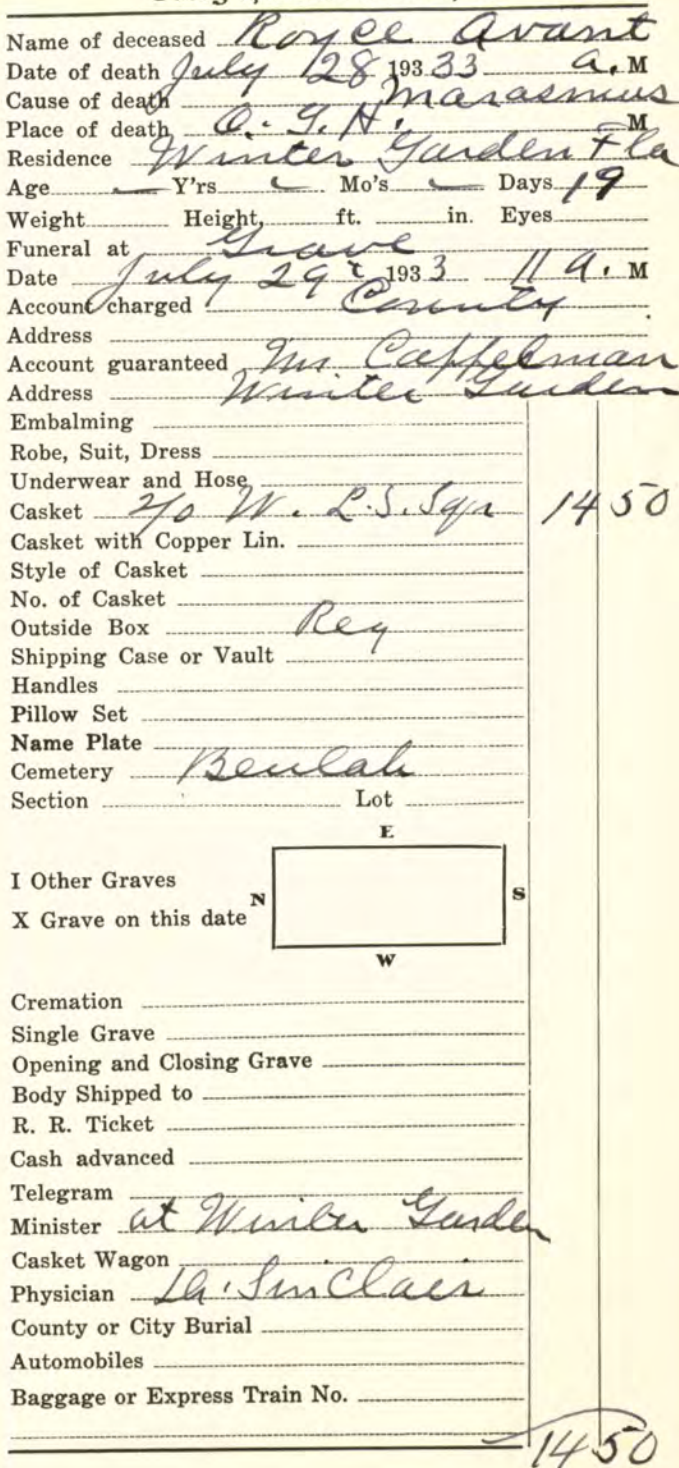 Name of deceased Royce Avant
Date of death July 28 193 33 a. M
Cause of death Marasmus
Place of death O. G. H. M
Residence Winter Garden Fla
Age Y'rs Mo's Days 19
Weight Height, ft. in. Eyes
Funeral at Grave
Date July 29 193 3 11 a. M
Account charged County
Address
Account guaranteed Cappelman
Address Winter Garden
Embalming
Robe, Suit, Dress
Underwear and Hose
Casket 2/0 W. L.S. Sqr 14 50
Casket with Copper Lin.
Style of Casket
No. of Casket
Outside Box Reg
Shipping Case or Vault
Handles
Pillow Set
Name Plate
Cemetery Beulah
Section Lot
E
I Other Graves
N S
X Grave on this date
W
Cremation
Single Grave
Opening and Closing Grave
Body Shipped to
R. R. Ticket
Cash advanced
Telegram
Minister at Winter Garden
Casket Wagon
Physician Dr. SinClair
County or City Burial
Automobiles
Baggage or Express Train No.
14 50